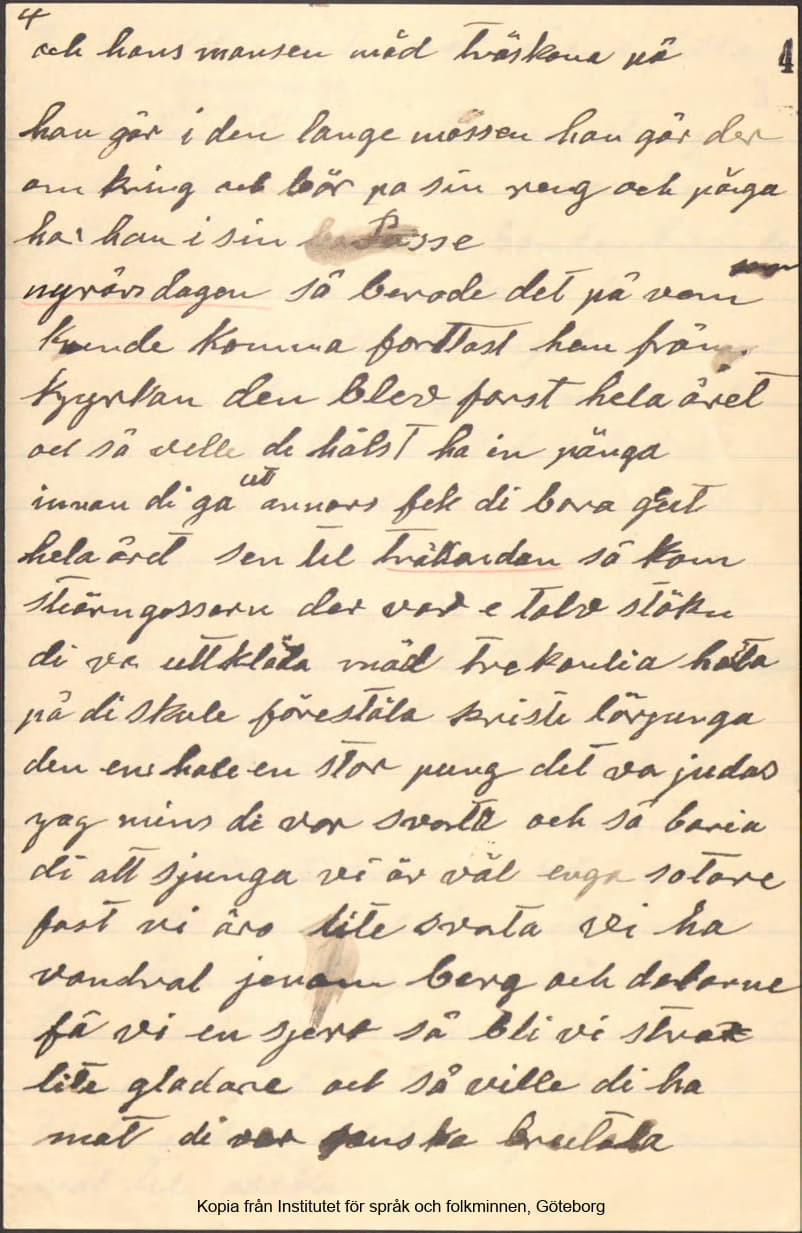 4
och hans mansen mäd träskona på
4
han går i den lange mössen han går der
om kring och bör pa sin reng och pänga
har han i sin Passe
nyrårsdagen så berode det på vem som
kunde komma forttast hem från
kyyrkan den blev forst hela året
och så velle de hälst ha in pänga
innan di ga ut annors fek di bara gut
hela året sen til trättandan så kom
stiärngossarn der var e talv stökn
di va uttkläda mäd trekantia hata
på di skule förestäla kriste lörjunga
den ene hale en stor pung det va judas
yag mins di var svarta och så baria
di att sjunga vi är väl enga sotare
fast vi äro lite svarta vi ha
vandrat jenom berg och dalarne
få vi en sjerv så bli vi strax
lite gladare och så ville di ha
mat di var ganska brutala
Kopia från Institutet för språk och folkminnen, Göteborg